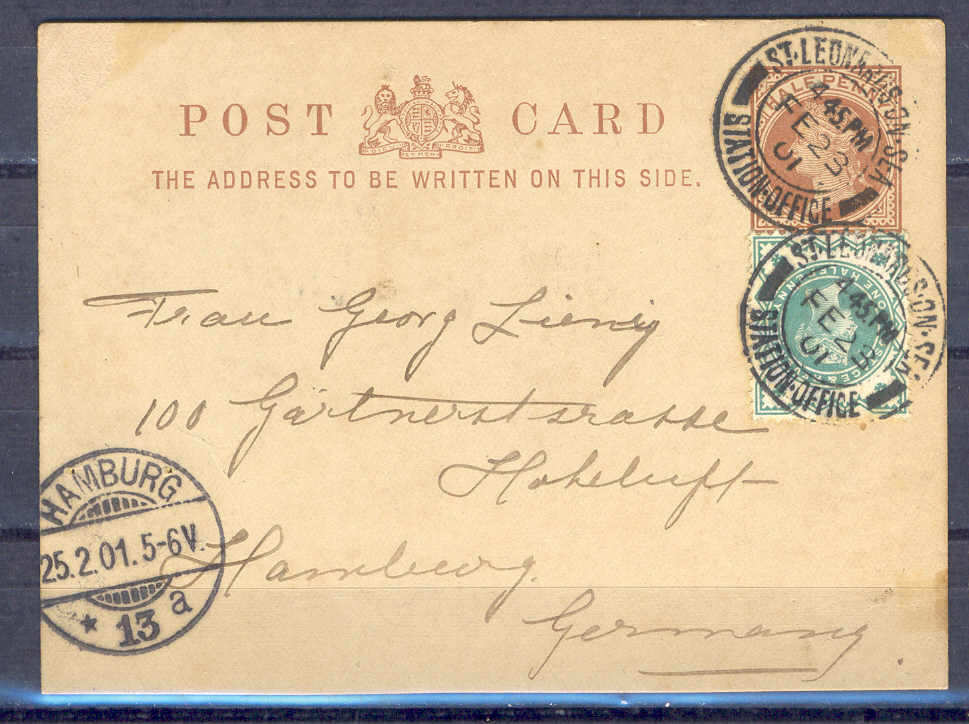 POST CARD
THE ADDRESS TO BE WRITTEN ON THIS SIDE.
HALF PENNY
ST. LEONARDS-ON-SEA
4 45 PM
FE 23
01
STATION-OFFICE
ONE HALFPENNY
ST. LEONARDS-ON-SEA
4 45 PM
FE 23
01
STATION-OFFICE
Frau Georg
100 Gärtnerstrasse
Hoheluft
Hamburg.
Germany
HAMBURG
25.2.01. 5-6V.
* 13 a